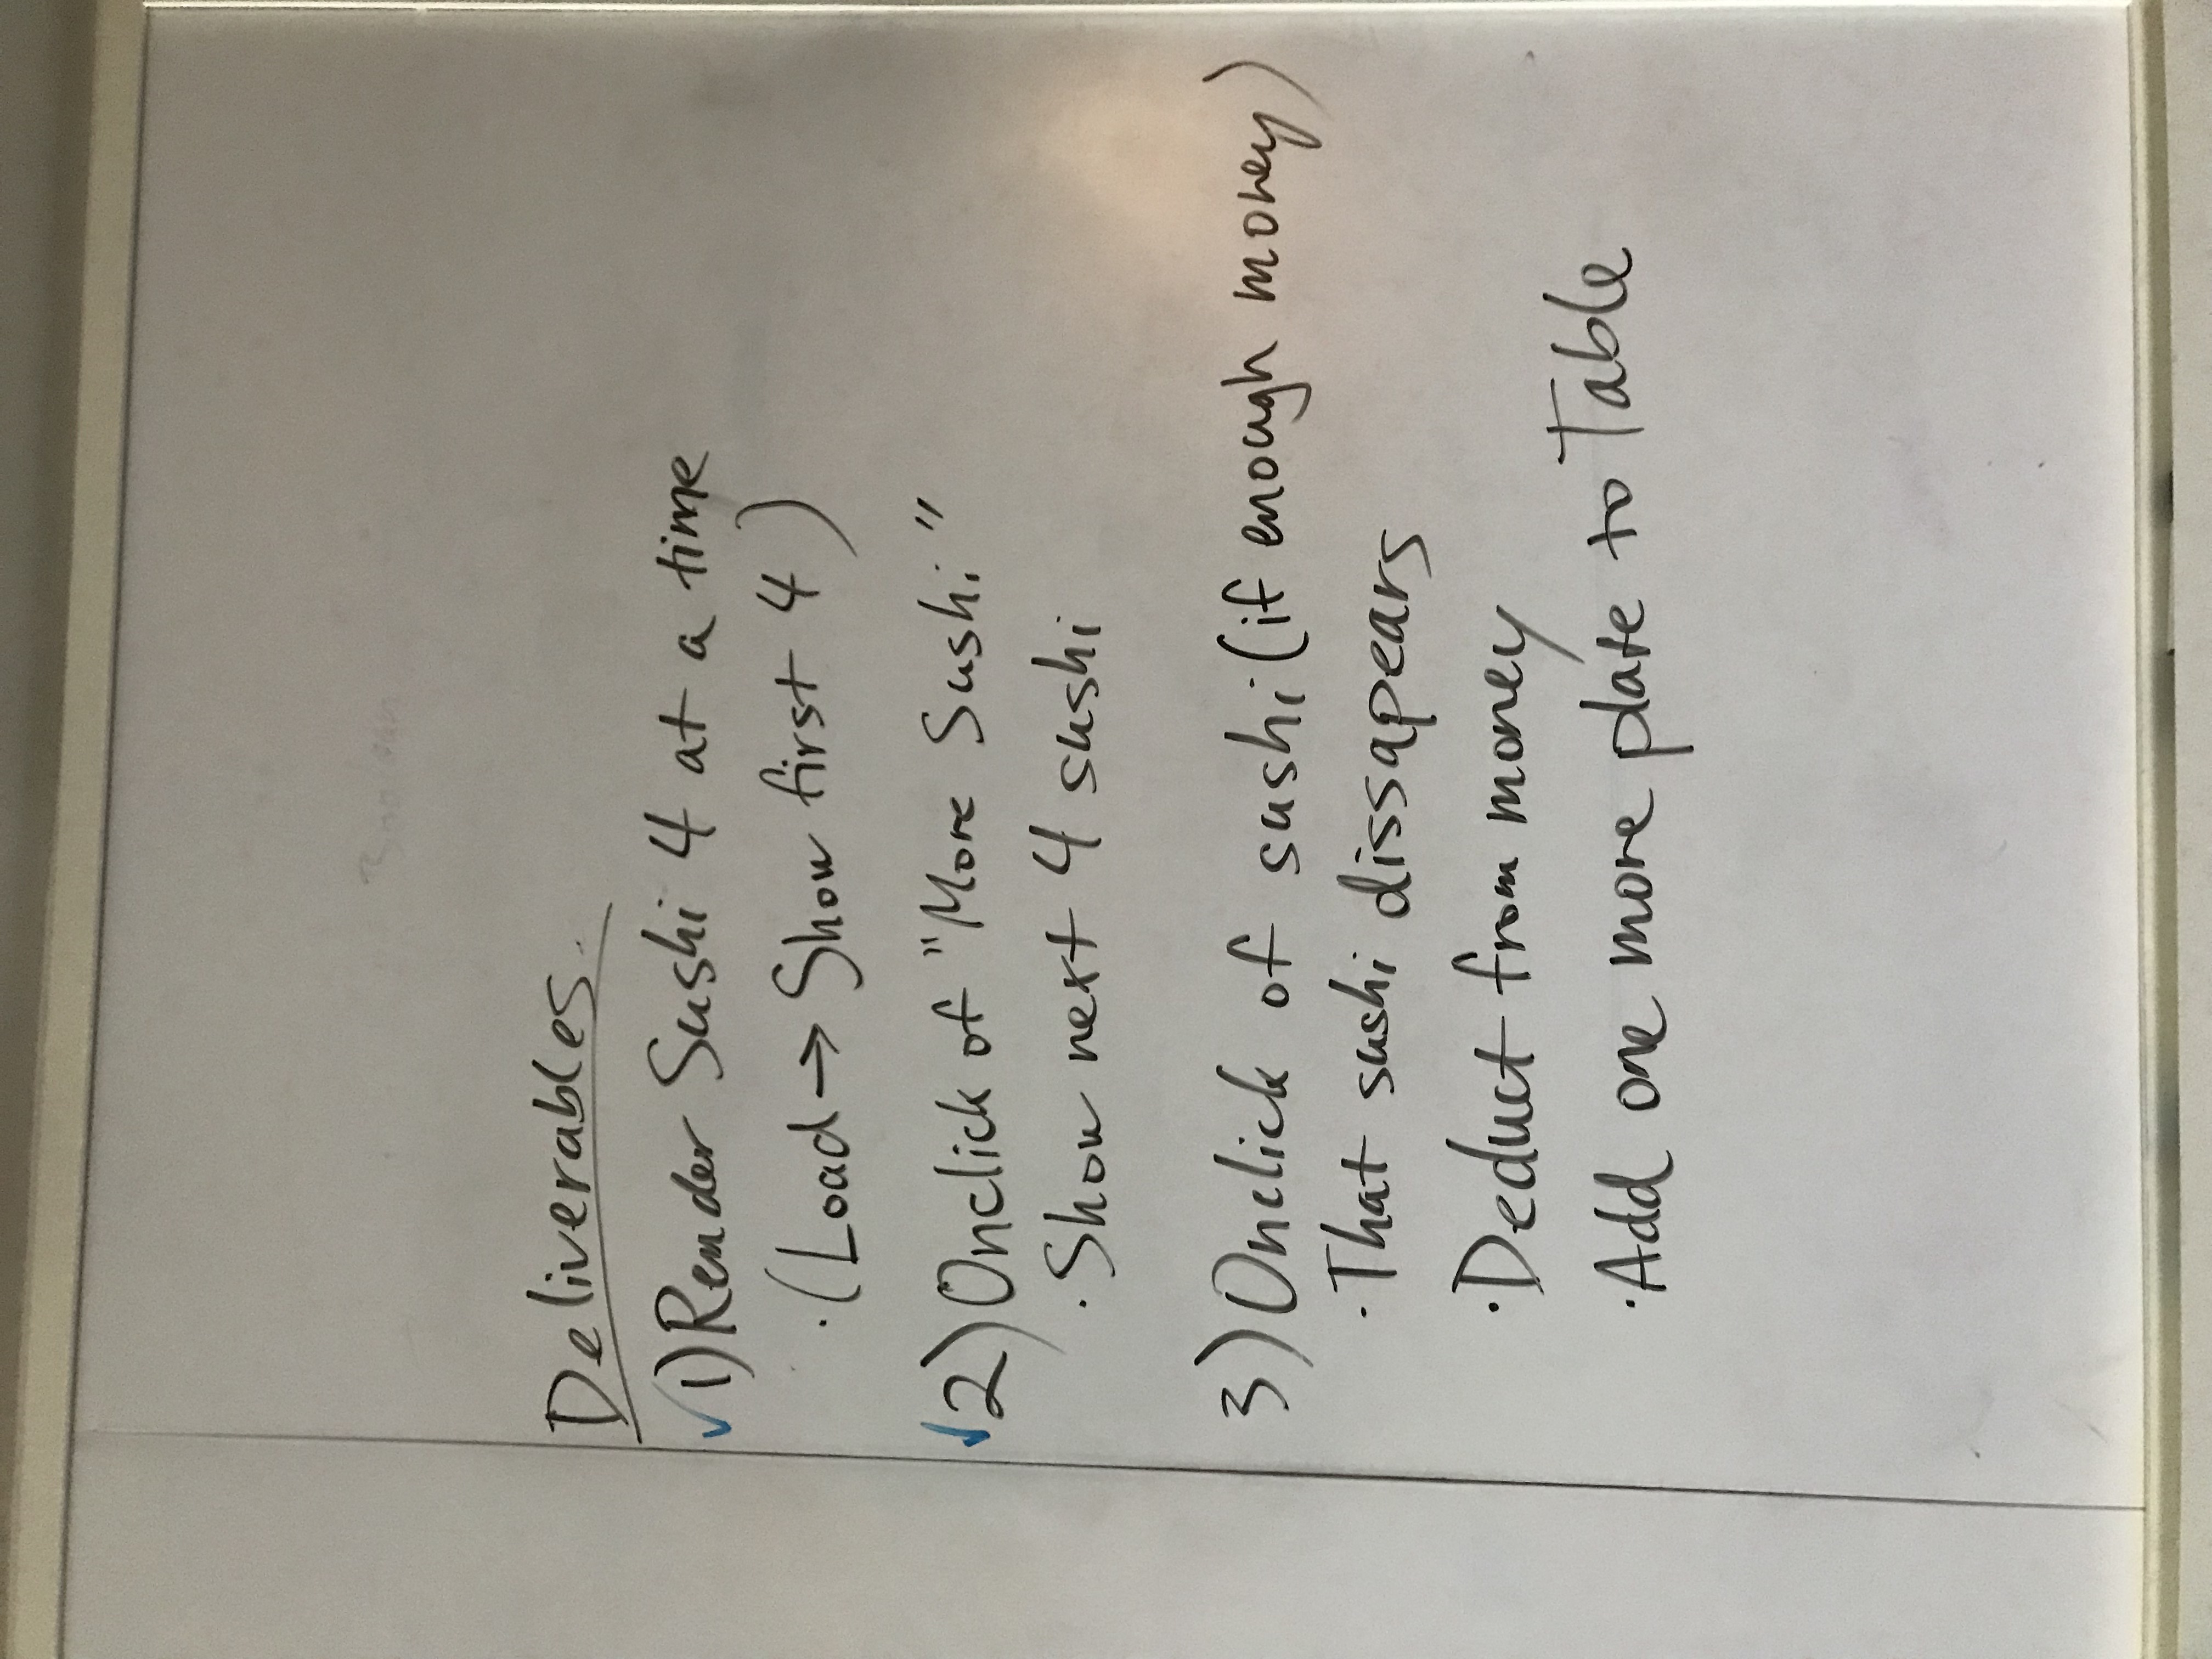 Deliverables.
✓1) Render Sushi 4 at a time
·(Load → Show first 4)
✓2) Onclick of "More Sushi"
·Show next 4 sushi
3) Onclick of sushi (if enough money)
·That sushi dissapears
·Deduct from money
·Add one more plate to Table